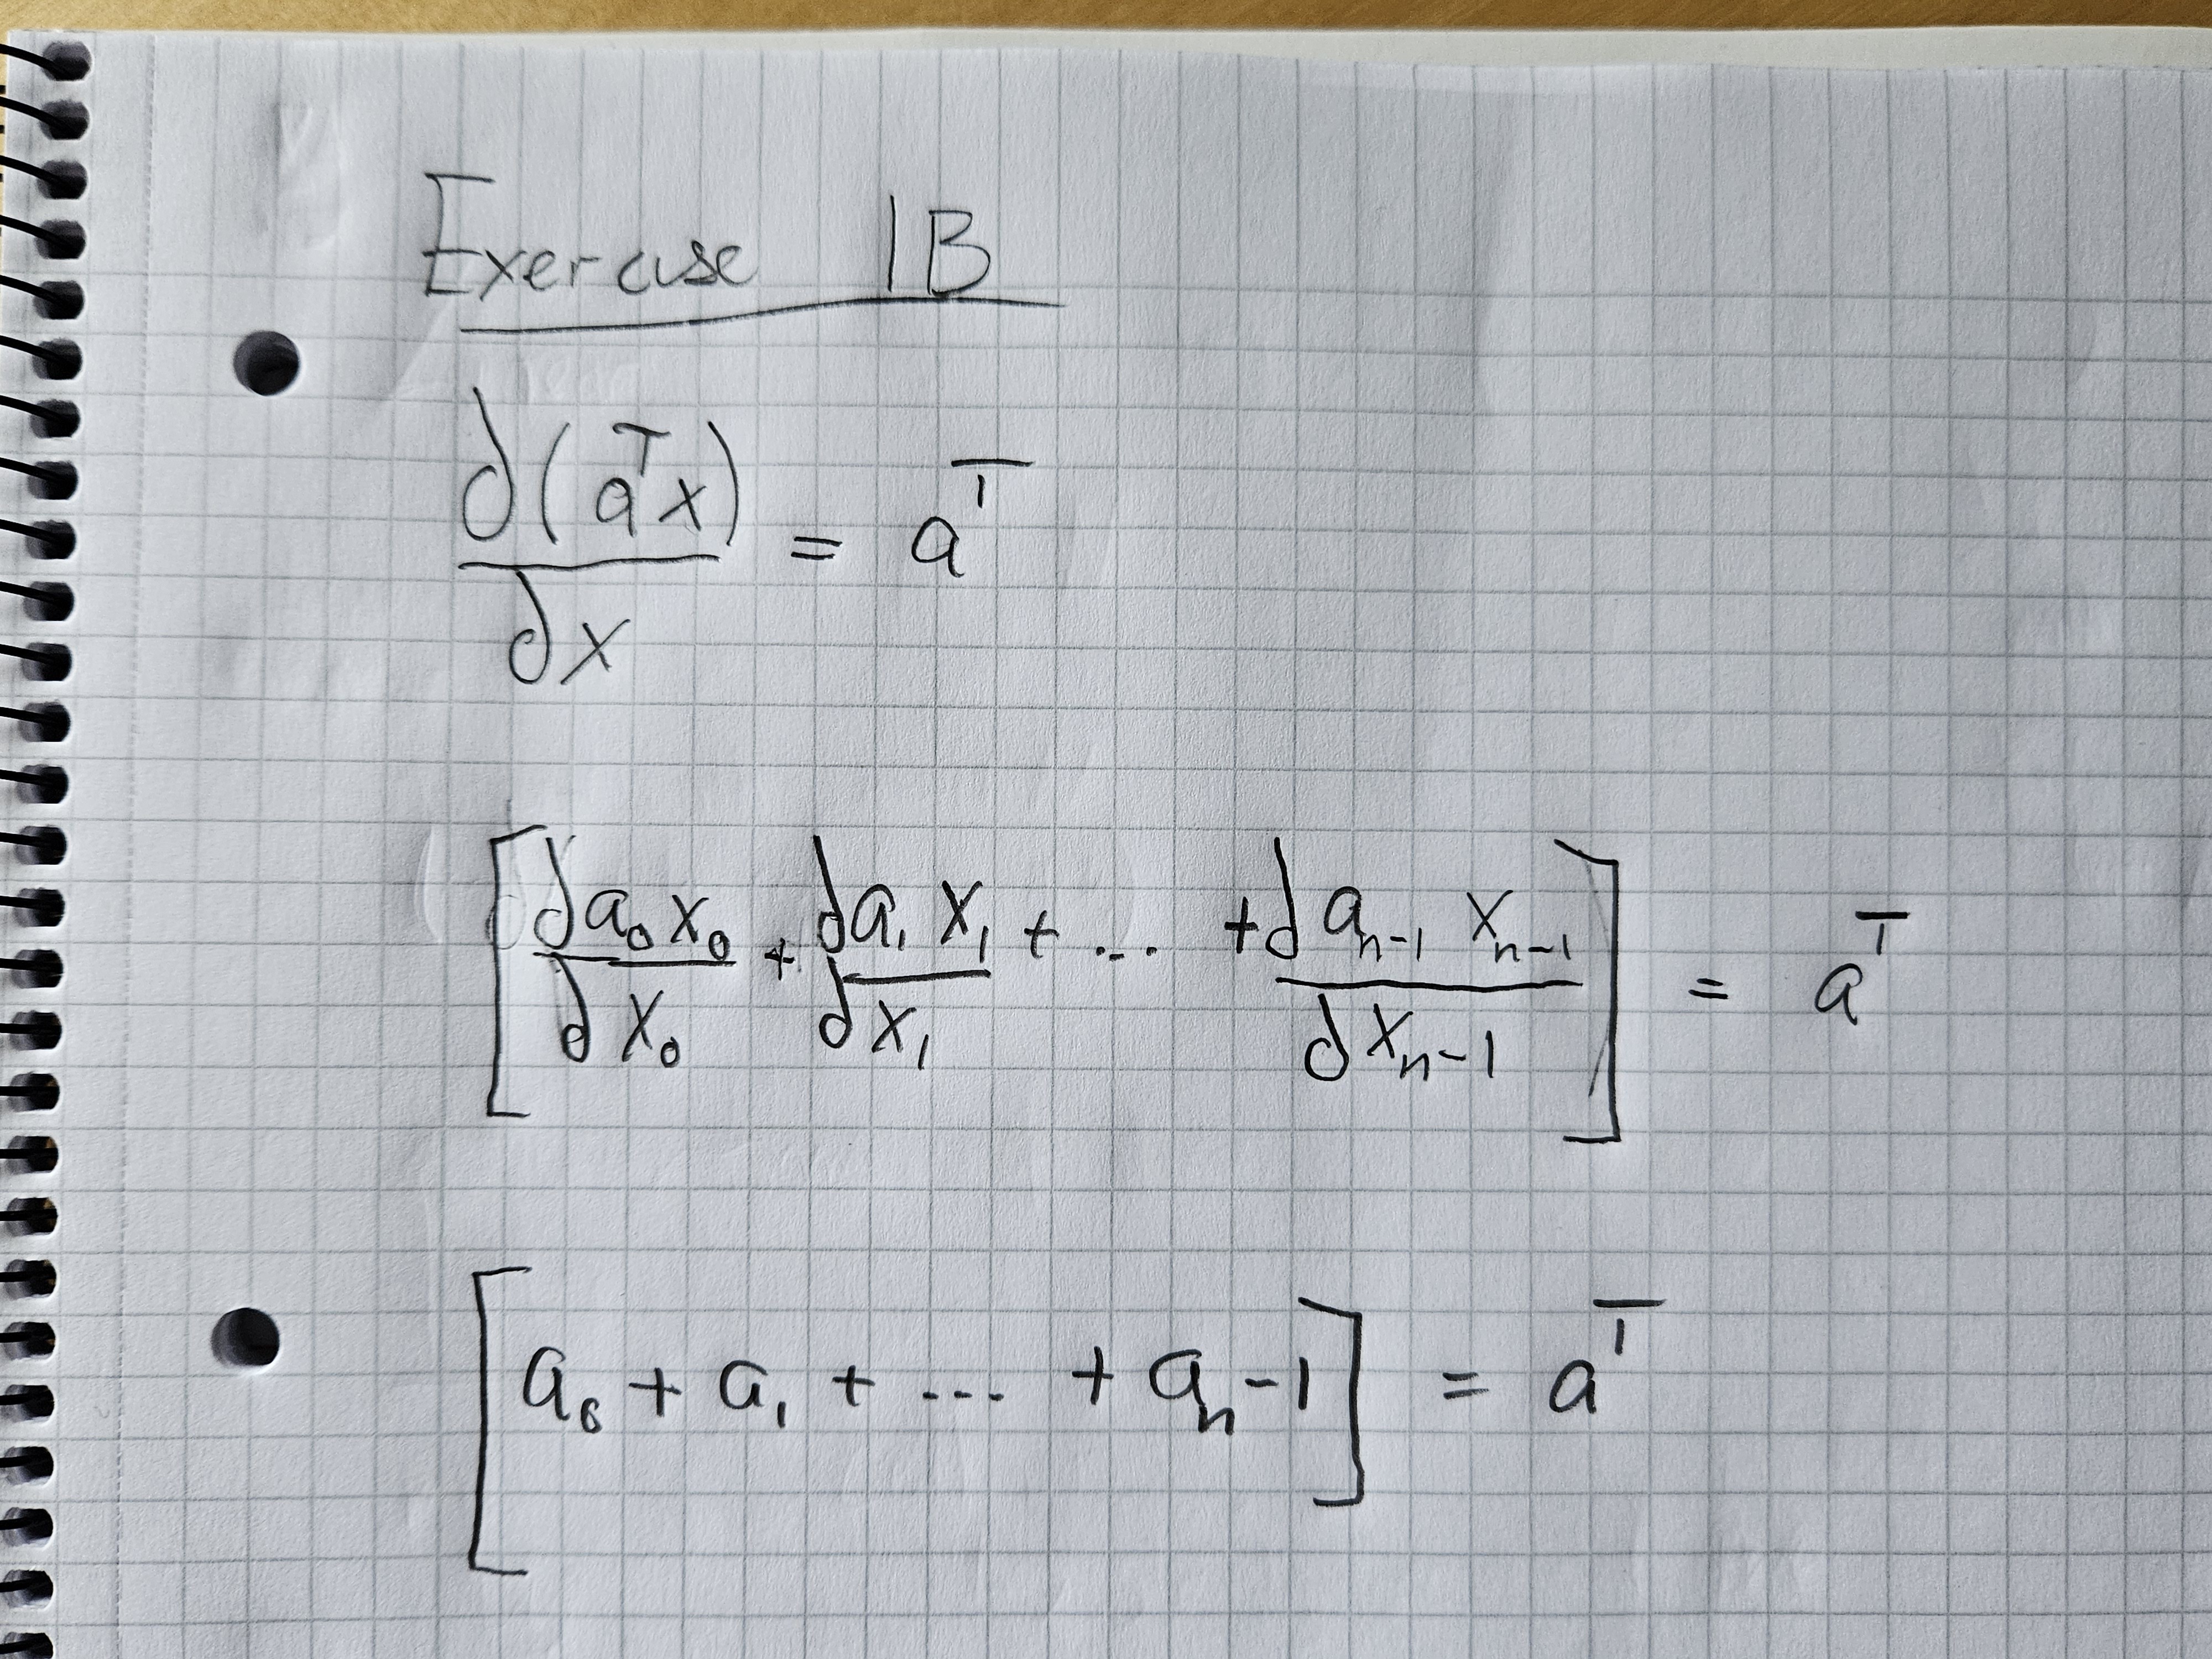 Exercise 1B
∂(aᵀx)/∂x = aᵀ
[∂a₀x₀/∂x₀ + ∂a₁x₁/∂x₁ + ... + ∂aₙ₋₁xₙ₋₁/∂xₙ₋₁] = aᵀ
[a₀ + a₁ + ... + aₙ-1] = aᵀ